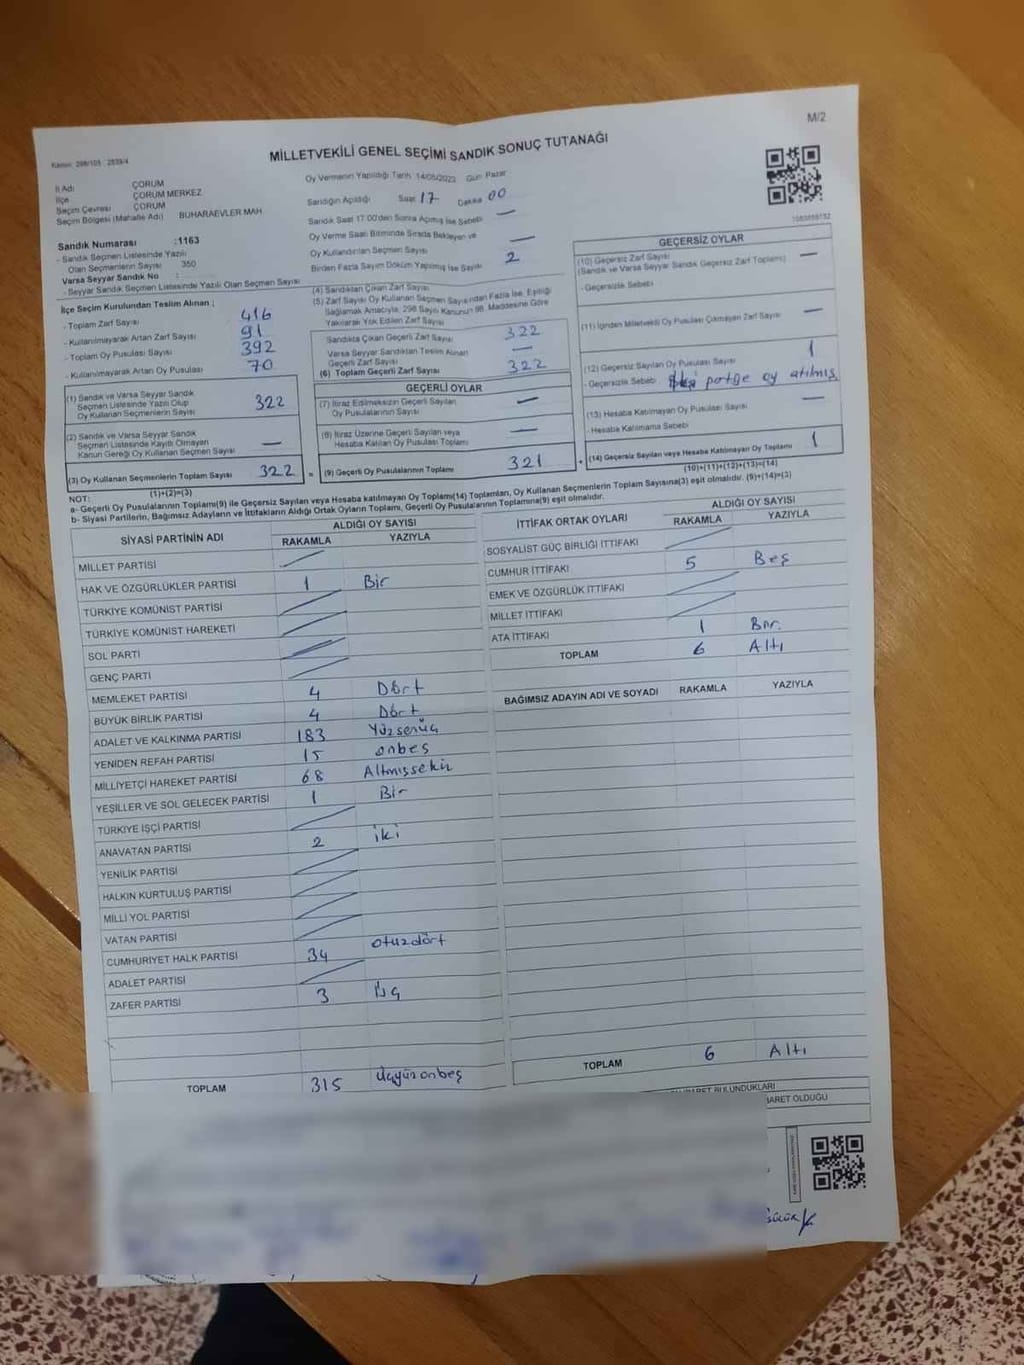 M/2
Kanun: 298/105 2839/4
MİLLETVEKİLİ GENEL SEÇİMİ SANDIK SONUÇ TUTANAĞI
İl Adı ÇORUM
İlçe ÇORUM MERKEZ
Seçim Çevresi ÇORUM
Seçim Bölgesi (Mahalle Adı) BUHARAEVLER MAH
Sandık Numarası :1163
- Sandık Seçmen Listesinde Yazılı
Olan Seçmenlerin Sayısı 350
Varsa Seyyar Sandık No :
- Seyyar Sandık Seçmen Listesinde Yazılı Olan Seçmen Sayısı
Oy Vermenin Yapıldığı Tarih 14/05/2023 Gün Pazar
Sandığın Açıldığı Saat 17 Dakika 00
Sandık Saat 17:00'den Sonra Açılmış İse Sebebi —
Oy Verme Saati Bitiminde Sırada Bekleyen ve
Oy Kullandırılan Seçmen Sayısı —
Birden Fazla Sayım Döküm Yapılmış İse Sayısı 2
İlçe Seçim Kurulundan Teslim Alınan ;
- Toplam Zarf Sayısı 416
- Kullanılmayarak Artan Zarf Sayısı 91
- Toplam Oy Pusulası Sayısı 392
- Kullanılmayarak Artan Oy Pusulası 70
(1) Sandık ve Varsa Seyyar Sandık
Seçmen Listesinde Yazılı Olup
Oy Kullanan Seçmenlerin Sayısı 322
(2) Sandık ve Varsa Seyyar Sandık
Seçmen Listesinde Kayıtlı Olmayan
Kanun Gereği Oy Kullanan Seçmen Sayısı —
(3) Oy Kullanan Seçmenlerin Toplam Sayısı 322 =
(1)+(2)=(3)
(4) Sandıktan Çıkan Zarf Sayısı
(5) Zarf Sayısı Oy Kullanan Seçmen Sayısından Fazla İse, Eşitliği
Sağlamak Amacıyla; 298 Sayılı Kanunun 98. Maddesine Göre
Yakılarak Yok Edilen Zarf Sayısı
Sandıkta Çıkan Geçerli Zarf Sayısı 322
Varsa Seyyar Sandıktan Teslim Alınan
Geçerli Zarf Sayısı —
(6) Toplam Geçerli Zarf Sayısı 322
GEÇERLİ OYLAR
(7) İtiraz Edilmeksizin Geçerli Sayılan
Oy Pusulalarının Sayısı —
(8) İtiraz Üzerine Geçerli Sayılan veya
Hesaba Katılan Oy Pusulası Toplamı —
(9) Geçerli Oy Pusulalarının Toplamı 321 +
GEÇERSİZ OYLAR
(10) Geçersiz Zarf Sayısı —
(Sandık ve Varsa Seyyar Sandık Geçersiz Zarf Toplamı)
- Geçersizlik Sebebi
(11) İçinden Milletvekili Oy Pusulası Çıkmayan Zarf Sayısı —
(12) Geçersiz Sayılan Oy Pusulası Sayısı 1
- Geçersizlik Sebebi partiye oy atılmış
(13) Hesaba Katılmayan Oy Pusulası Sayısı —
- Hesaba Katılmama Sebebi
(14) Geçersiz Sayılan veya Hesaba Katılmayan Oy Toplamı 1
(10)+(11)+(12)+(13)=(14)
NOT:
a- Geçerli Oy Pusulalarının Toplamı(9) ile Geçersiz Sayılan veya Hesaba katılmayan Oy Toplamı(14) Toplamları, Oy Kullanan Seçmenlerin Toplam Sayısına(3) eşit olmalıdır. (9)+(14)=(3)
b- Siyasi Partilerin, Bağımsız Adayların ve İttifakların Aldığı Ortak Oyların Toplamı, Geçerli Oy Pusulalarının Toplamına(9) eşit olmalıdır.
SİYASİ PARTİNİN ADI ALDIĞI OY SAYISI
RAKAMLA YAZIYLA
MİLLET PARTİSİ
HAK VE ÖZGÜRLÜKLER PARTİSİ 1 Bir
TÜRKİYE KOMÜNİST PARTİSİ
TÜRKİYE KOMÜNİST HAREKETİ
SOL PARTİ
GENÇ PARTİ
MEMLEKET PARTİSİ 4 Dört
BÜYÜK BİRLİK PARTİSİ 4 Dört
ADALET VE KALKINMA PARTİSİ 183 Yüzsenüç
YENİDEN REFAH PARTİSİ 15 onbeş
MİLLİYETÇİ HAREKET PARTİSİ 68 Altmışsekiz
YEŞİLLER VE SOL GELECEK PARTİSİ 1 Bir
TÜRKİYE İŞÇİ PARTİSİ
ANAVATAN PARTİSİ 2 iki
YENİLİK PARTİSİ
HALKIN KURTULUŞ PARTİSİ
MİLLİ YOL PARTİSİ
VATAN PARTİSİ
CUMHURİYET HALK PARTİSİ 34 otuzdört
ADALET PARTİSİ
ZAFER PARTİSİ 3 Üç
TOPLAM 315 Üçyüzonbeş
İTTİFAK ORTAK OYLARI ALDIĞI OY SAYISI
RAKAMLA YAZIYLA
SOSYALİST GÜÇ BİRLİĞİ İTTİFAKI
CUMHUR İTTİFAKI 5 Beş
EMEK VE ÖZGÜRLÜK İTTİFAKI
MİLLET İTTİFAKI
ATA İTTİFAKI 1 Bir.
TOPLAM 6 Altı
BAĞIMSIZ ADAYIN ADI VE SOYADI RAKAMLA YAZIYLA
TOPLAM 6 Altı
BULUNDUKLARI
İBARET OLDUĞU